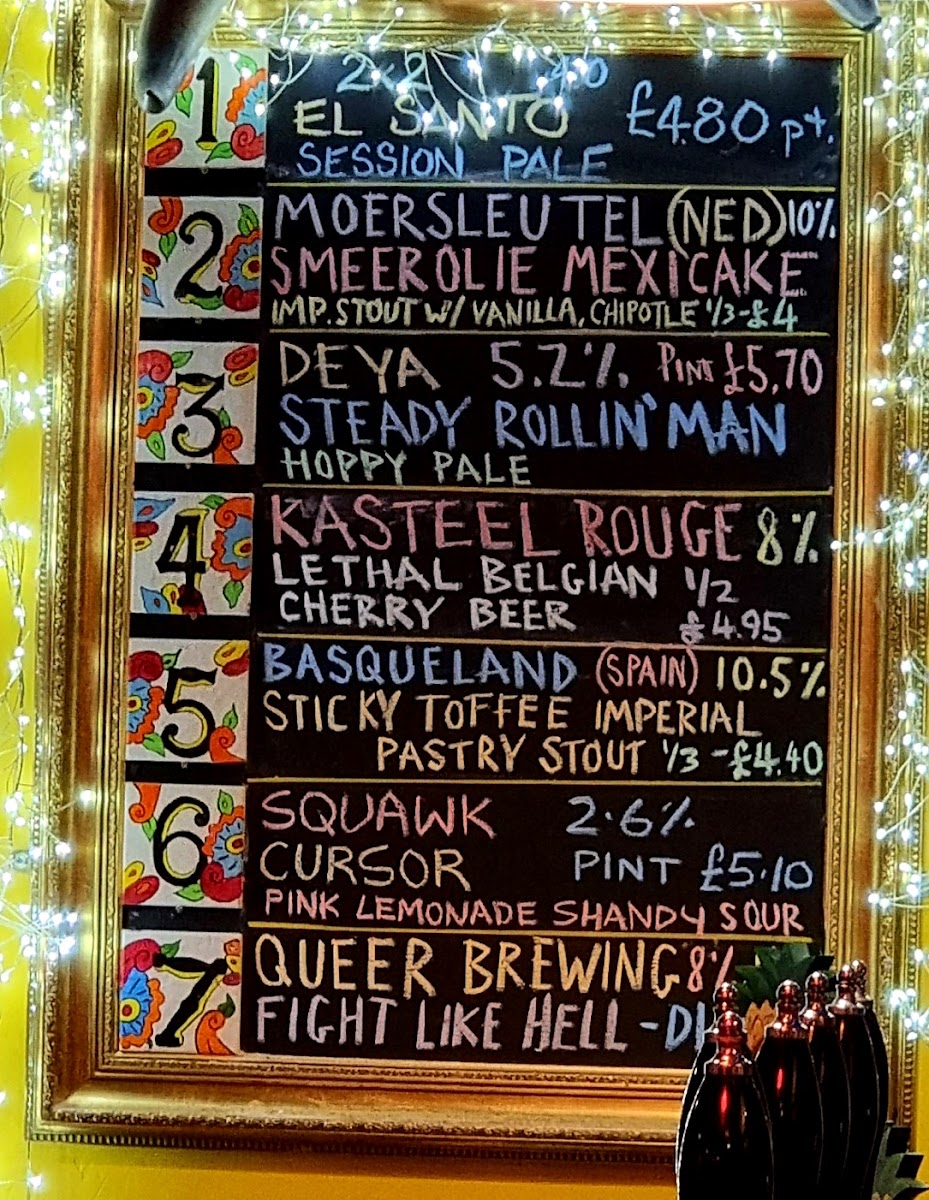 1
EL SANTO £4.80 pt.
SESSION PALE
2
MOERSLEUTEL (NED) 10%
SMEEROLIE MEXICAKE
IMP. STOUT W/ VANILLA, CHIPOTLE 1/3-£4
3
DEYA 5.2% PINT £5,70
STEADY ROLLIN' MAN
HOPPY PALE
4
KASTEEL ROUGE 8%
LETHAL BELGIAN 1/2
CHERRY BEER £4.95
5
BASQUELAND (SPAIN) 10.5%
STICKY TOFFEE IMPERIAL
PASTRY STOUT 1/3-£4.40
6
SQUAWK 2.6%
CURSOR PINT £5.10
PINK LEMONADE SHANDY SOUR
7
QUEER BREWING 8%
FIGHT LIKE HELL -